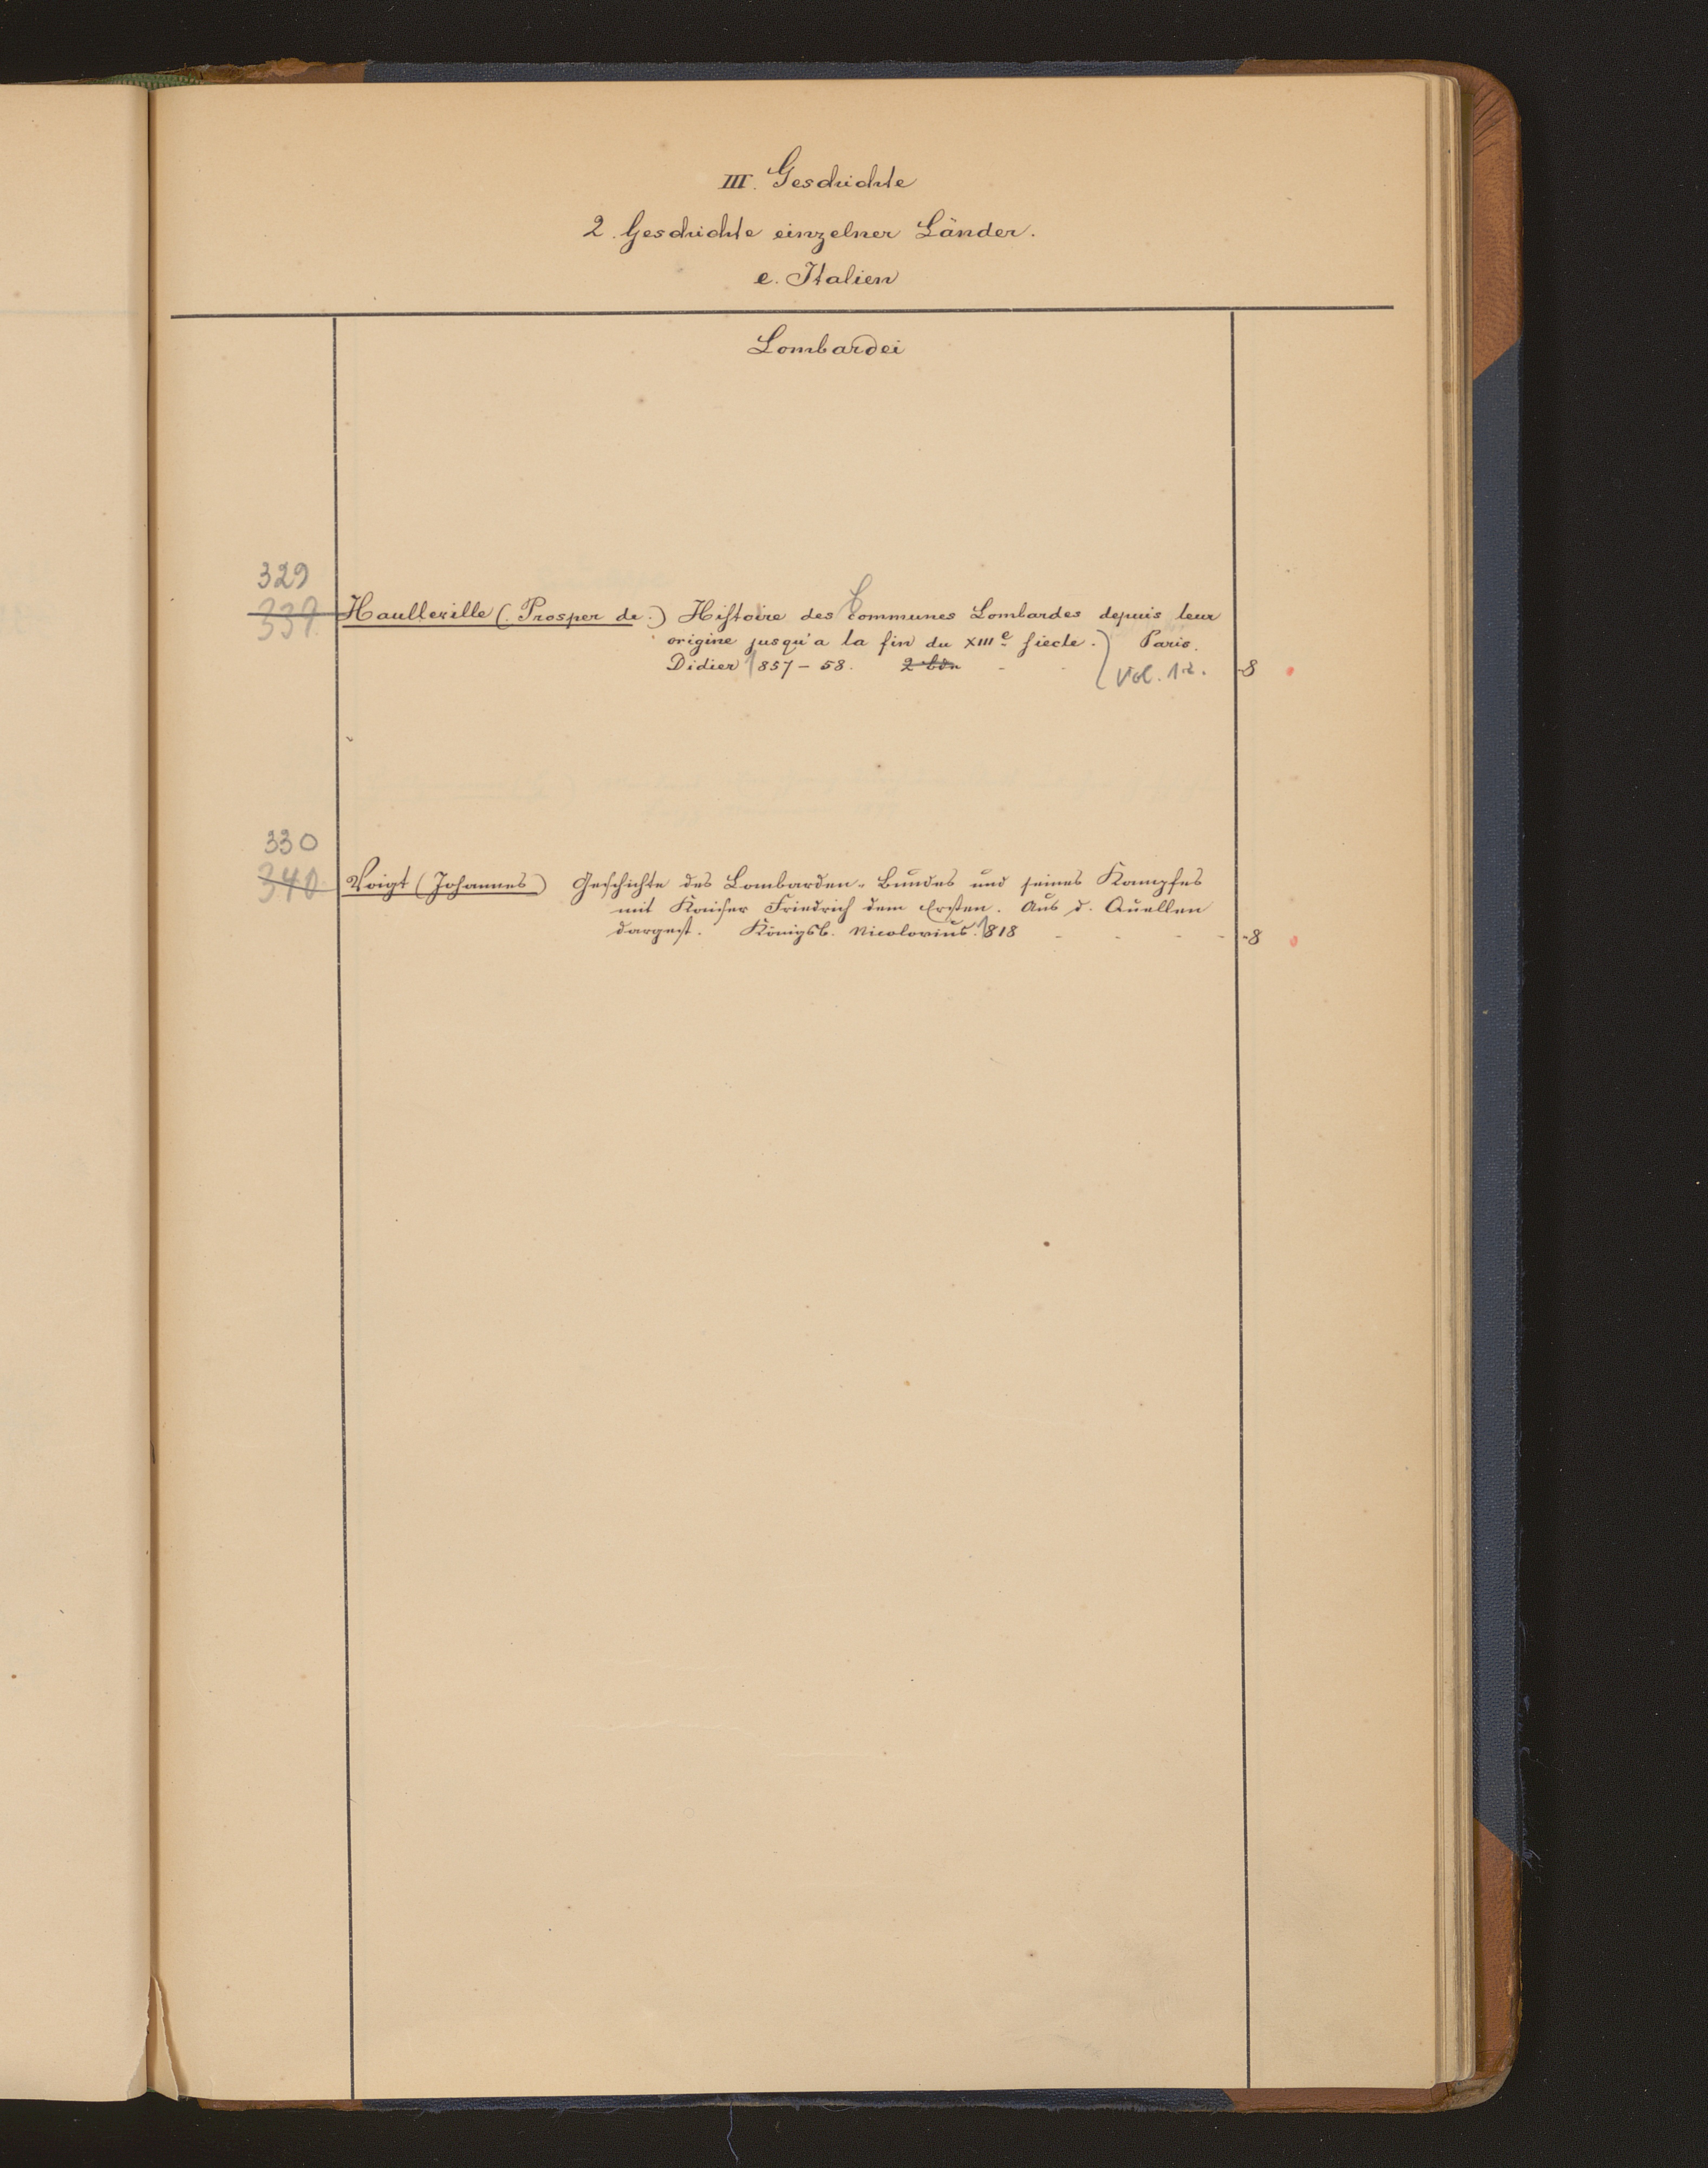 III. Geschichte
2. Geschichte einzelner Länder.
e. Italien
Lombardei
329
339 Haulleville (Prosper de.) Histoire des Communes Lombardes depuis leur
origine jusqu'a la fin du XIIIe siecle.) Paris.
Didier 1857-58. 2 bdn - - (Vol. 1.2. -8
330
340 Voigt (Johannes) Geschichte des Lombarden-Bundes und seines Kampfes
mit Kaiser Friedrich dem Ersten. Aus d. Quellen
dargest. Königsb. Nicolovius. 1818 - - - - -8